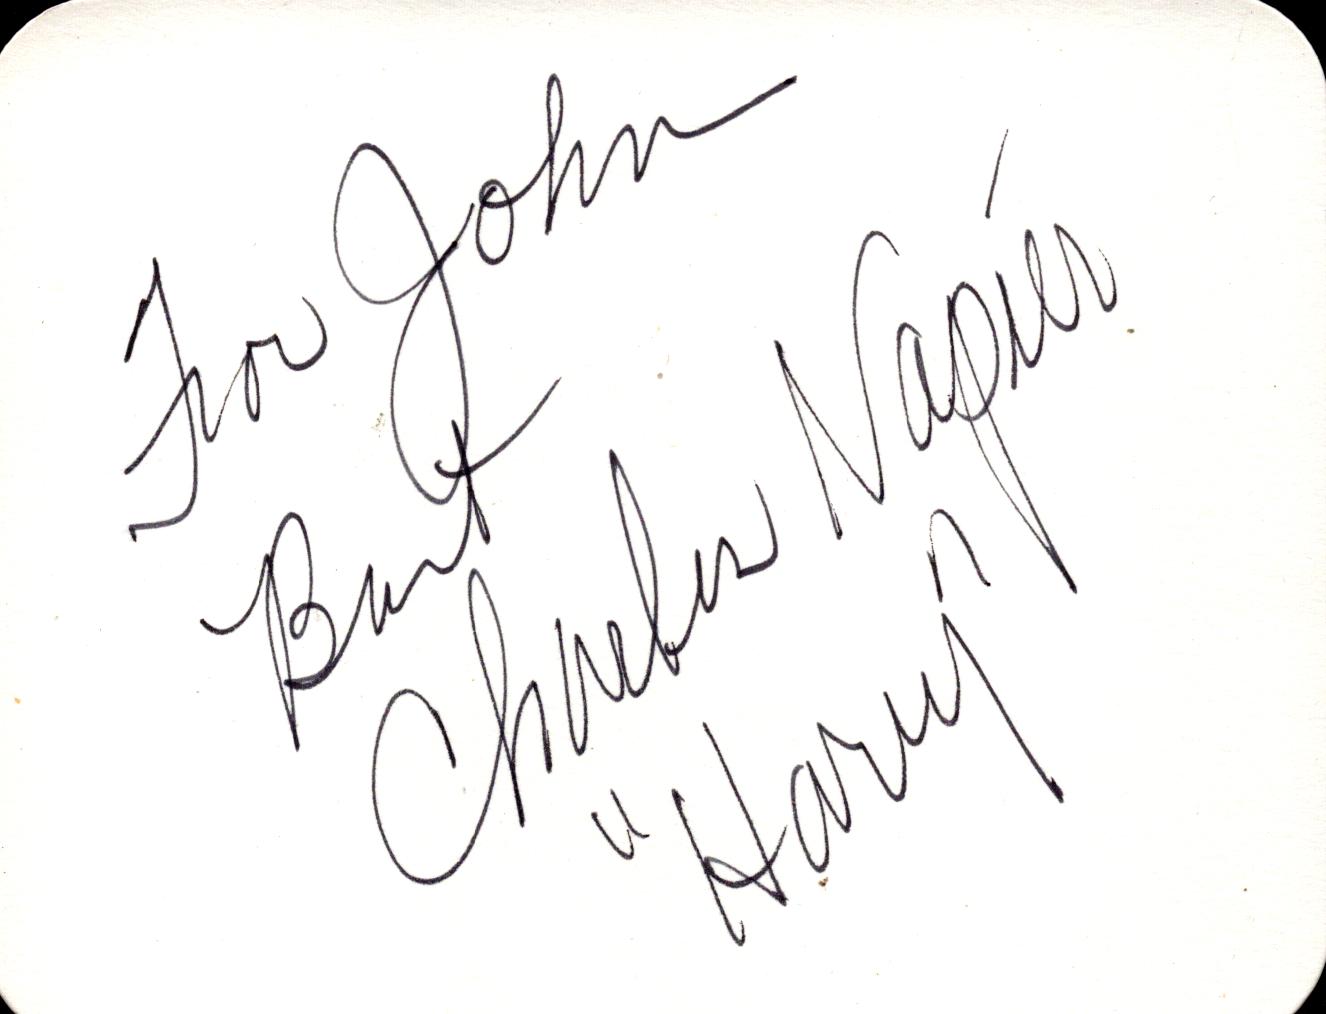 For John
Best
Charles Napier
"Harry"